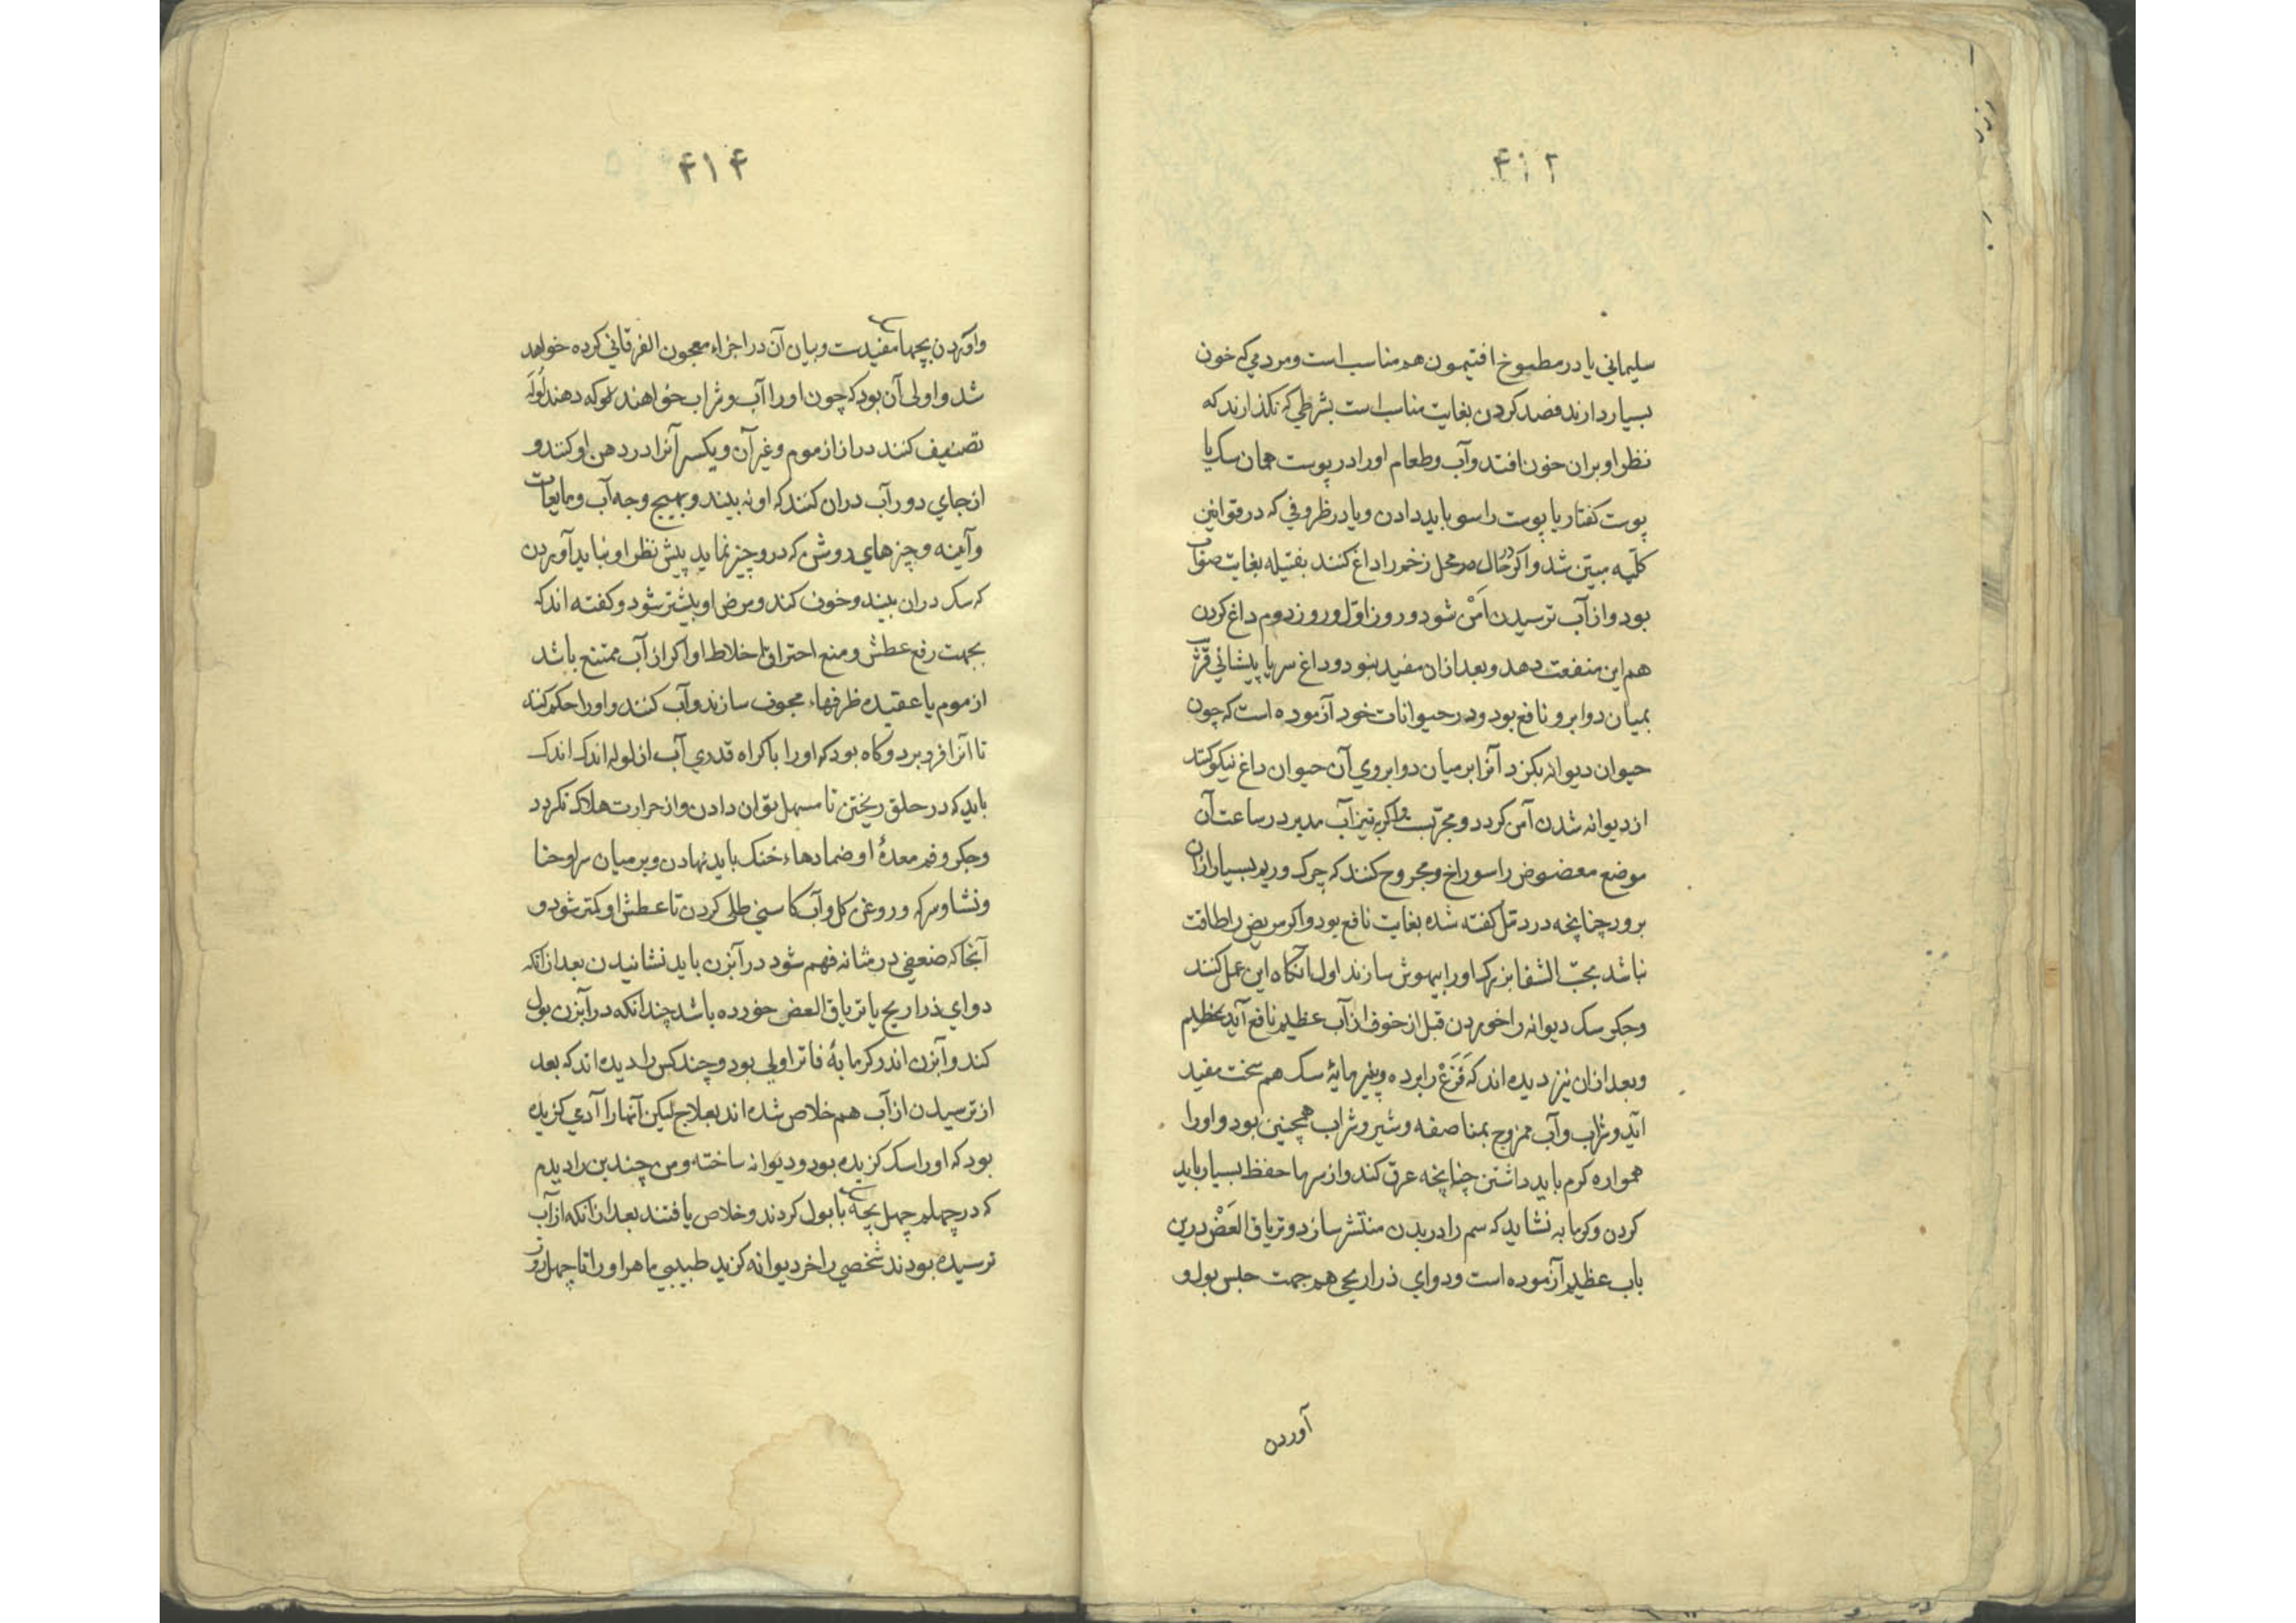 ۴۱۲
سلیماني یا در مطبوخ افتیمون هم مناسب است و مردمي که خون
بسیار دارند فصد کردن بغایت مناسب است بشرطي که نکذارند که
نظر او بران خون افتد و آب و طعام او را در پوست همان سک یا
پوست کفتار یا پوست راسو باید دادن و یا در ظروفي که در قوانین
کلیه مبین شد و اکر در حال محل زخم را داغ کنند بفتیله بغایت صواب
بود و از آب ترسیدن اَمَنْ شود و روز اوّل و روز دوم داغ کردن
هم این منفعت دهد و بعد ازان مفید نبود و داغ سر یا پیشاني
بمیان دو ابرو نافع بود و در حیوانات خود آزموده است که چون
حیوان دیوانه بکزد آنرا بر میان دو ابروي آن حیوان داغ نیکو کنند
از دیوانه شدن آمن کردد و مجربست و اکر به تیز آب مدبر در ساعت آن
موضع معضوض را سوراخ و مجروح کنند که چرک و ریم بسیار ازان
برود چنانچه در دمّل کفته شده بغایت نافع بود و اکر مریض را طاقت
نباشد بحبّ الشفا بزرک او را بیهوش سازند اول آنکاه این عمل کنند
و جکر سک دیوانه را خوردن قبل از خوف از آب عظیم نافع آید بخظیم
و بعد ازان نیز دیده اند که فَزَعْ را برده و پنیر مایهٔ سک هم سخت مفید
آید و شراب و آب ممزوج بمناصفه و شیر و شراب همچنین بود و او را
همواره کرم باید داشتن چنانچه عرق کند و از سرما حفظ بسیار باید
کردن و کرمابه نشاید که سم را در بدن منتشر سازد و تریاق العَضْ درین
باب عظیم آزموده است و دواي ذراریح هم جهت حبس بول و
آوردن
۴۱۴
و آوردن بچها مفیدست و بیان آن در اجزاء معجون الفرقاني کرده خواهد
شد و اولی آن بود که چون او را آب و شراب خواهند که دهند لوله
تصنیف کنند دراز از موم و غیر آن و یکسر آنرا در دهن او کنند و
از جاي دور آب دران کنند که او نه بیند و بهیچ وجه آب و مایعات
و آینه و چیزهاي روشن که درو چیز نماید پیش نظر او نباید آوردن
که سک دران بیند و خوف کند و مرض او بیشتر شود و کفته اند که
بجهت رفع عطش و منع احتراق اخلاط او اکر از آب ممتنع باشد
از موم یا عقیده ظرفهاء مجوف سازند و آب کنند و او را حکم کنند
تا آنرا فرو برد و کاه بود که او را باکراه قدري آب از لوله اندک اندک
باید که در حلق ریختن تا مسهل توان دادن و از حرارت هلاک نکردد
و جکر و فم معدهٔ او ضمادهاء خنک باید نهادن و بر میان سر او حنا
و نشا و سرکه و روغن کل و آب کاسني طلی کردن تا عطش او کمتر شود و
آنجا که ضعفي در مثانه فهم شود در آبزن باید نشانیدن بعد ازانکه
دواي ذراریح یا تریاق العض خورده باشد چندانکه در آبزن بول
کند و آبزن اندر کرمابهٔ فاتر اولي بود و چند کس را دیده اند که بعد
از ترسیدن از آب هم خلاص شده اند بعلاج لیکن آنها را آدمي کزیده
بود که او را سک کزیده بود و دیوانه ساخته و من چندین را دیدم
که در چهلم چهل بچه با بول کردند و خلاص یافتند بعد ازانکه از آب
ترسیده بودند شخصي را خر دیوانه کزید طبیبي ماهر او را تا چهل روز